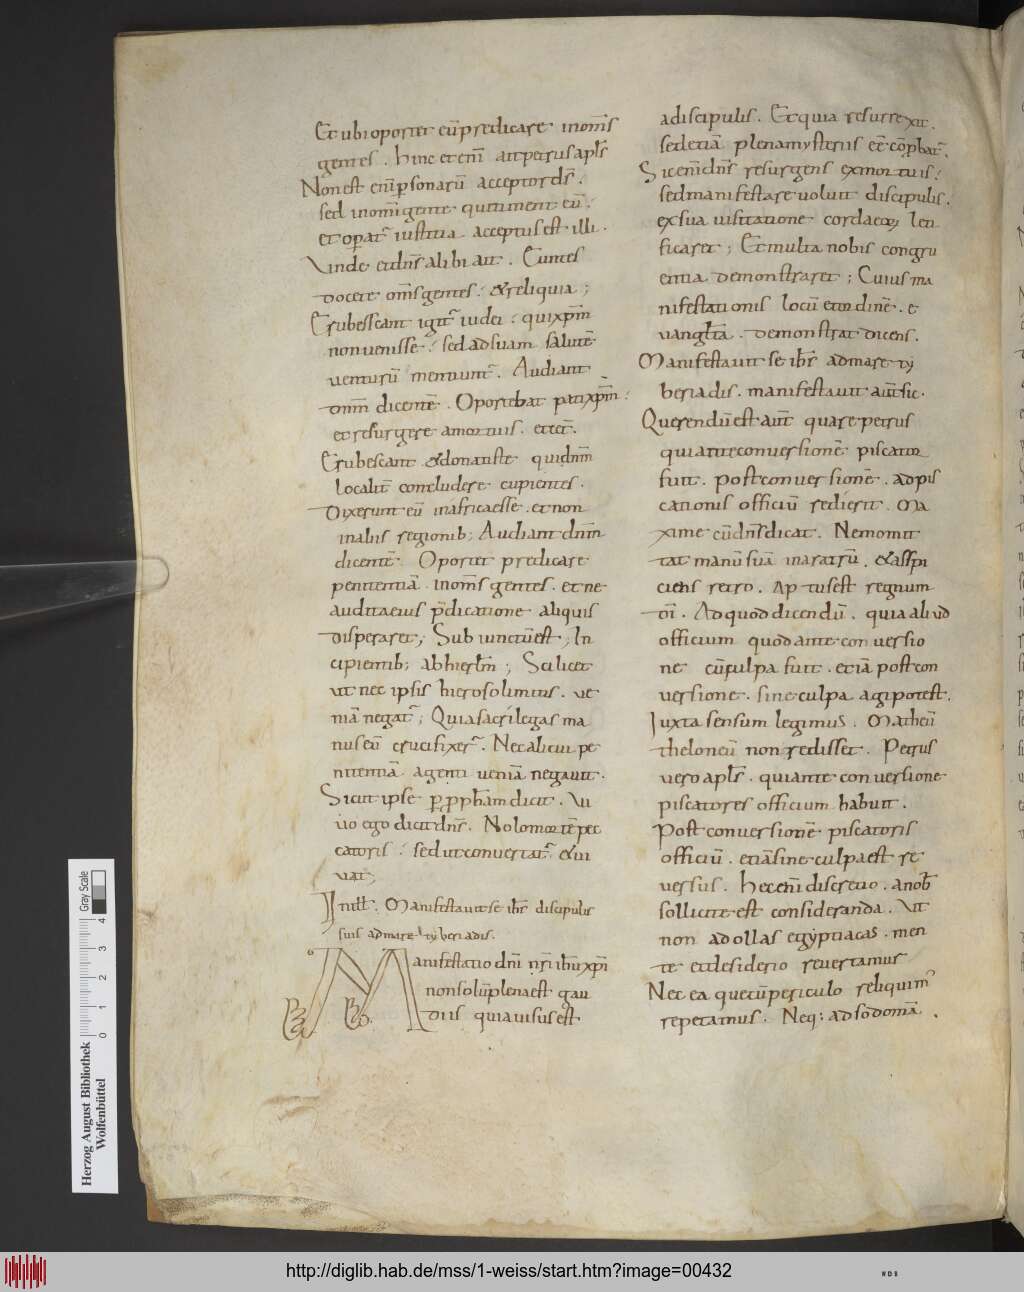 Et ubi oportet eū predicare in om̄s
gentes . hinc et eni͂ ait petrus apls̄
Non est eni͂ p̲sonarū acceptor ds̄ .
sed in om̄i gente qui timent eū .
et op̲at̄ iustitia acceptus est illi .
Unde et dn̄s alibi ait . Euntes
docete om̄s gentes . & reliqua ;
Erubesscant igit̄ iudei . qui xp̄m
non uenisse . sed ad suam salutē
uenturū mentiunt̄ . Audiant
dicentē . Oportebat pati xp̄m .
et resurgere a mortuis . et cet̄ .
Erubescant & donatiste qui dn̄m
localit̄ concludere cupientes .
Dixerunt eū in africa esse . et non
in aliis regionib; Audiant dn̄m
dicentē . Oportet predicare
penitentiā in om̄s gentes . et ne
audita eius p̄dicatione aliquis
disperaret ; Subiunctū est ; In
cipientib; ab hierlm̄ ; Scilicet
ut nec ipsis hierosolimitis . ue
niā negat̄ ; Quia sacrilegas ma
nus eū crucifixer̄ . Nec alicui pe
nitentiā agenti ueniā negauit .
Sicut ipse p̲ pph̄am dicit . Ui
uo ego dicit dn̄s . Nolo mortē pec
catoris . sed ut conuertat̄ & ui
uat ;
In ill̄ . Manifestauit se ih̄s discipulis
suis ad mare tyberiadis .
Manifestatio dn̄i nr̄i ih̄u xp̄i
non solū plena est gau
diis quia uisus est
a discipulis . Et quia resurrexit .
sed etiā plena mystriis eē cōp̲bat̄ .
Sic eni͂ dn̄s resurgens ex mortuis .
sed manifestare uoluit discipulis .
ex sua uisitatione corda eoꝝ leti
ficaret ; Et multa nobis congru
entia demonstraret ; Cuius ma
nifestationis locū et ordinē . e
uanglīsta . demonstrat dicens .
Manifestauit se ih̄s ad mare ty
beriadis . manifestauit aūt sic .
Querendū est aūt quare petrus
qui ante conuersionē piscator
fuit . post conuersionē . ad pis
cationis officiū redierit . Ma
xime cū dn̄s dicat . Nemo mit
tat manū suā in aratrū . & aspi
ciens retro . aptus est regnum
dī . Ad quod dicendū . quia aliud
officium quod ante conuersio
ne cū culpa fuit . etiā post con
uersione . sine culpa agi potest .
Iuxta sensum legimus . Matheū
theloneū non redisset . Petrus
uero apls̄ . qui ante conuersione
piscatores officium habuit .
Post conuersionē piscatoris
officiū . etiā sine culpa est re
uersus . Hec eni͂ discretio . a nob̄
sollicite est consideranda . Ut
non ad ollas egyptiacas . men
te et desiderio reuertamus
Nec ea que cū periculo reliquim̄
repetamus . Neq: ad sodomā .
Herzog August Bibliothek
Wolfenbüttel
0 1 2 3 4
Gray Scale
http://diglib.hab.de/mss/1-weiss/start.htm?image=00432